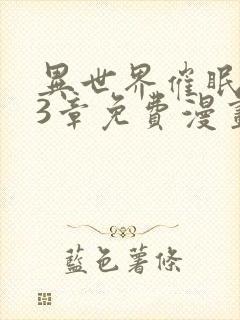 異世界催眠
3章免費漫畫
藍色薯條